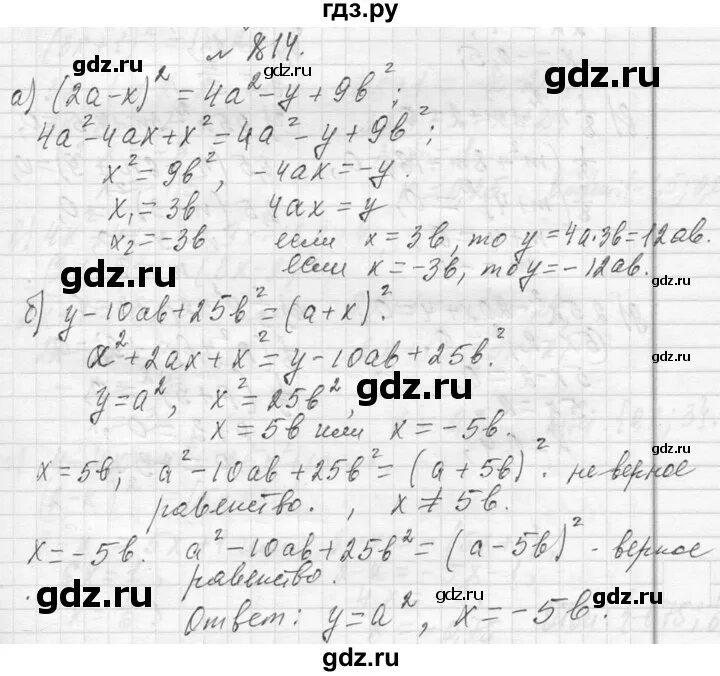 гдз.ру
№ 814.
gdz.ru gdz.ru
а) (2a-x)² = 4a² - y + 9b²;
4a² - 4ax + x² = 4a² - y + 9b²;
gdz.ru
x² = 9b², -4ax = -y.
gdz.ru
x₁ = 3b 4ax = y
x₂ = -3b если x = 3b, то y = 4a·3b = 12ab.
если x = -3b, то y = -12ab.
gdz.ru gdz.ru
б) y - 10ab + 25b² = (a + x)².
a² + 2ax + x² = y - 10ab + 25b².
gdz.ru
gdz.ru
y = a², x² = 25b²,
x = 5b или x = -5b.
gdz.ru
x = 5b, a² - 10ab + 25b² = (a + 5b)² - неверное
равенство., x ≠ 5b.
gdz.ru
gdz.ru
x = -5b. a² - 10ab + 25b² = (a - 5b)² - верное
равенство.
gdz.ru
gdz.ru
Ответ: y = a², x = -5b.
gdz.ru